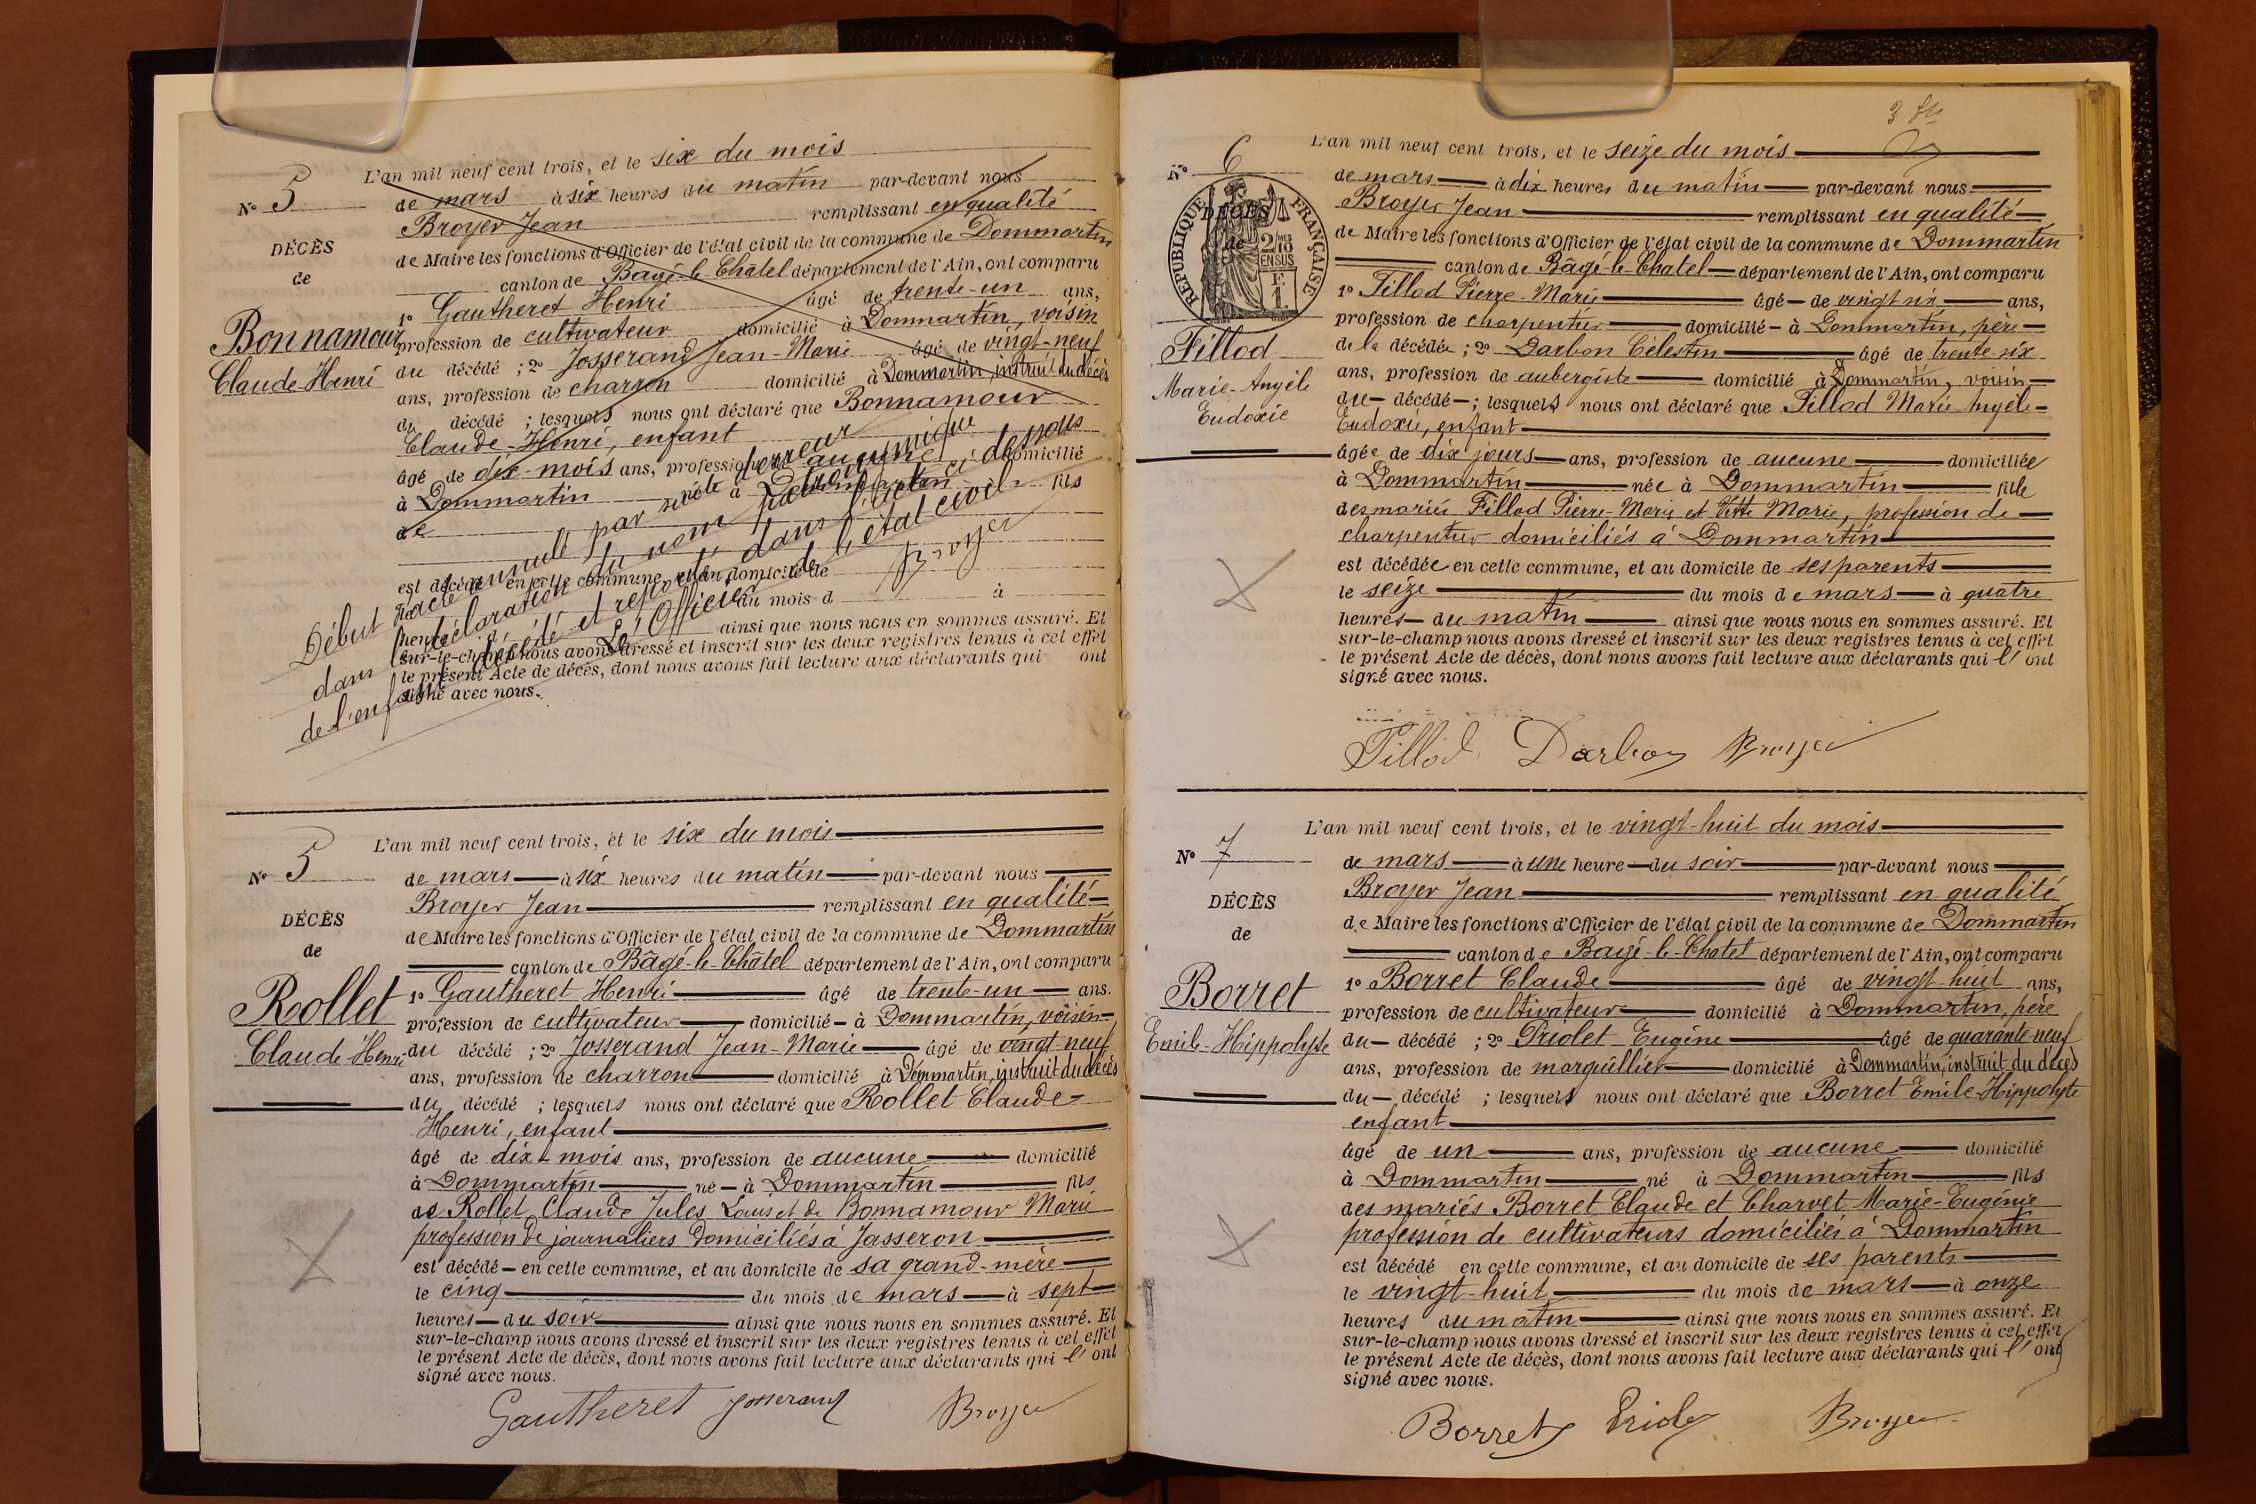 L'an mil neuf cent trois, et le six du mois
N° 5
de mars à six heures du matin par-devant nous
Broyer Jean remplissant en qualité
DÉCÈS
de Maire les fonctions d'Officier de l'état civil de la commune de Dommartin
de
canton de Bagé-le-Châtel département de l'Ain, ont comparu
1° Gautheret Henri âgé de trente-un ans,
Bonnamour
profession de cultivateur domicilié à Dommartin, voisin
Claude-Henri
du décédé ; 2° Josserand Jean-Marie âgé de vingt-neuf
ans, profession de charron domicilié à Dommartin, instruit du décès
du décédé ; lesquels nous ont déclaré que Bonnamour
Claude-Henri, enfant
âgé de dix-mois ans, profession de aucune domicilié
à Dommartin né à Dommartin fils
de
est décédé en cette commune, et au domicile de
du mois d à
ainsi que nous nous en sommes assuré. Et
sur-le-champ nous avons dressé et inscrit sur les deux registres tenus à cet effet
le présent Acte de décès, dont nous avons fait lecture aux déclarants qui ont
signé avec nous.
Début d'acte annulé par suite d'erreur
dans la déclaration du nom patronymique
de l'enfant décédé et reporté dans l'acte ci-dessous
L'Officier de l'état civil
Broyer
L'an mil neuf cent trois, et le six du mois
N° 5
de mars à six heures du matin par-devant nous
Broyer Jean remplissant en qualité
DÉCÈS
de Maire les fonctions d'Officier de l'état civil de la commune de Dommartin
de
canton de Bâgé-le-Châtel département de l'Ain, ont comparu
Rollet
1° Gautheret Henri âgé de trente-un ans.
profession de cultivateur domicilié à Dommartin, voisin
Claude-Henri
du décédé ; 2° Josserand Jean-Marie âgé de vingt-neuf
ans, profession de charron domicilié à Dommartin, instruit du décès
du décédé ; lesquels nous ont déclaré que Rollet Claude-
Henri, enfant
âgé de dix-mois ans, profession de aucune domicilié
à Dommartin né à Dommartin fils
de Rollet Claude Jules Louis et de Bonnamour Marie
profession de journaliers domiciliés à Jasseron
est décédé en cette commune, et au domicile de sa grand-mère
le cinq du mois de mars à sept
heures du soir ainsi que nous nous en sommes assuré. Et
sur-le-champ nous avons dressé et inscrit sur les deux registres tenus à cet effet
le présent Acte de décès, dont nous avons fait lecture aux déclarants qui l'ont
signé avec nous.
Gautheret Josserand Broyer
L'an mil neuf cent trois, et le seize du mois
N° 6
de mars à dix heures du matin par-devant nous
RÉPUBLIQUE FRANÇAISE
2/10 EN SUS
F. 1.
Broyer Jean remplissant en qualité
DÉCÈS
de Maire les fonctions d'Officier de l'état civil de la commune de Dommartin
de
canton de Bâgé-le-Chatel département de l'Ain, ont comparu
1° Fillod Pierre-Marie âgé de vingt six ans,
profession de charpentier domicilié à Dommartin, père
Fillod
de la décédée ; 2° Darbon Célestin âgé de trente six
Marie-Angèle
ans, profession de aubergiste domicilié à Dommartin, voisin
Eudoxie
du décédé ; lesquels nous ont déclaré que Fillod Marie Angèle-
Eudoxie, enfant
âgée de dix jours ans, profession de aucune domiciliée
à Dommartin née à Dommartin fille
des mariés Fillod Pierre-Marie et Vitte Marie, profession de
charpentier domiciliés à Dommartin
est décédée en cette commune, et au domicile de ses parents
le seize du mois de mars à quatre
heures du matin ainsi que nous nous en sommes assuré. Et
sur-le-champ nous avons dressé et inscrit sur les deux registres tenus à cet effet
le présent Acte de décès, dont nous avons fait lecture aux déclarants qui l'ont
signé avec nous.
Fillod Darbon Broyer
L'an mil neuf cent trois, et le vingt-huit du mois
N° 7
de mars à une heure du soir par-devant nous
Broyer Jean remplissant en qualité
DÉCÈS
de Maire les fonctions d'Officier de l'état civil de la commune de Dommartin
de
canton de Bagé-le-Chatel département de l'Ain, ont comparu
1° Borret Claude âgé de vingt-huit ans,
Borret
profession de cultivateur domicilié à Dommartin, père
Emile-Hippolyte
du décédé ; 2° Priolet Eugène âgé de quarante-neuf
ans, profession de marguillier domicilié à Dommartin, instruit du décès
du décédé ; lesquels nous ont déclaré que Borret Emile-Hippolyte
enfant
âgé de un ans, profession de aucune domicilié
à Dommartin né à Dommartin fils
des mariés Borret Claude et Charvet Marie-Eugénie
profession de cultivateurs domiciliés à Dommartin
est décédé en cette commune, et au domicile de ses parents
le vingt-huit du mois de mars à onze
heures du matin ainsi que nous nous en sommes assuré. Et
sur-le-champ nous avons dressé et inscrit sur les deux registres tenus à cet effet
le présent Acte de décès, dont nous avons fait lecture aux déclarants qui l'ont
signé avec nous.
Borret Priolet Broyer